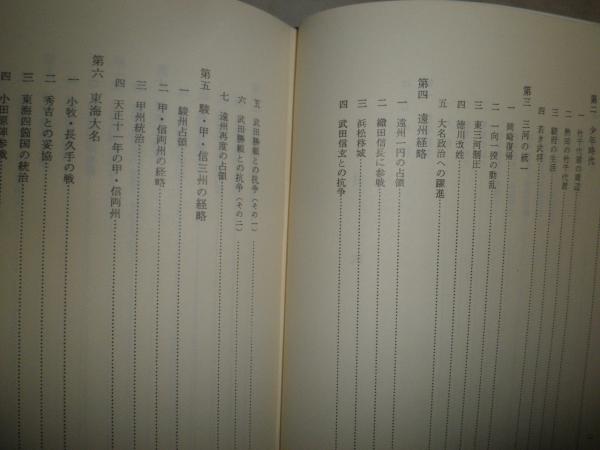 第二 少年時代
一 竹千代君の周辺
二 熱田の竹千代君
三 駿府の生活
四 若き武将
第三 三河の統一
一 岡崎復帰
二 一向一揆の動乱
三 東三河制圧
四 徳川改姓
五 大名政治への躍進
第四 遠州経略
一 遠州一円の占領
二 織田信長に参戦
三 浜松移城
四 武田信玄との抗争
五 武田勝頼との抗争(その一)
六 武田勝頼との抗争(その二)
七 遠州再度の占領
第五 駿・甲・信三州の経略
一 駿州占領
二 甲・信両州の経略
三 甲州統治
四 天正十一年の甲・信両州
第六 東海大名
一 小牧・長久手の戦
二 秀吉との妥協
三 東海四箇国の統治
四 小田原陣参戦